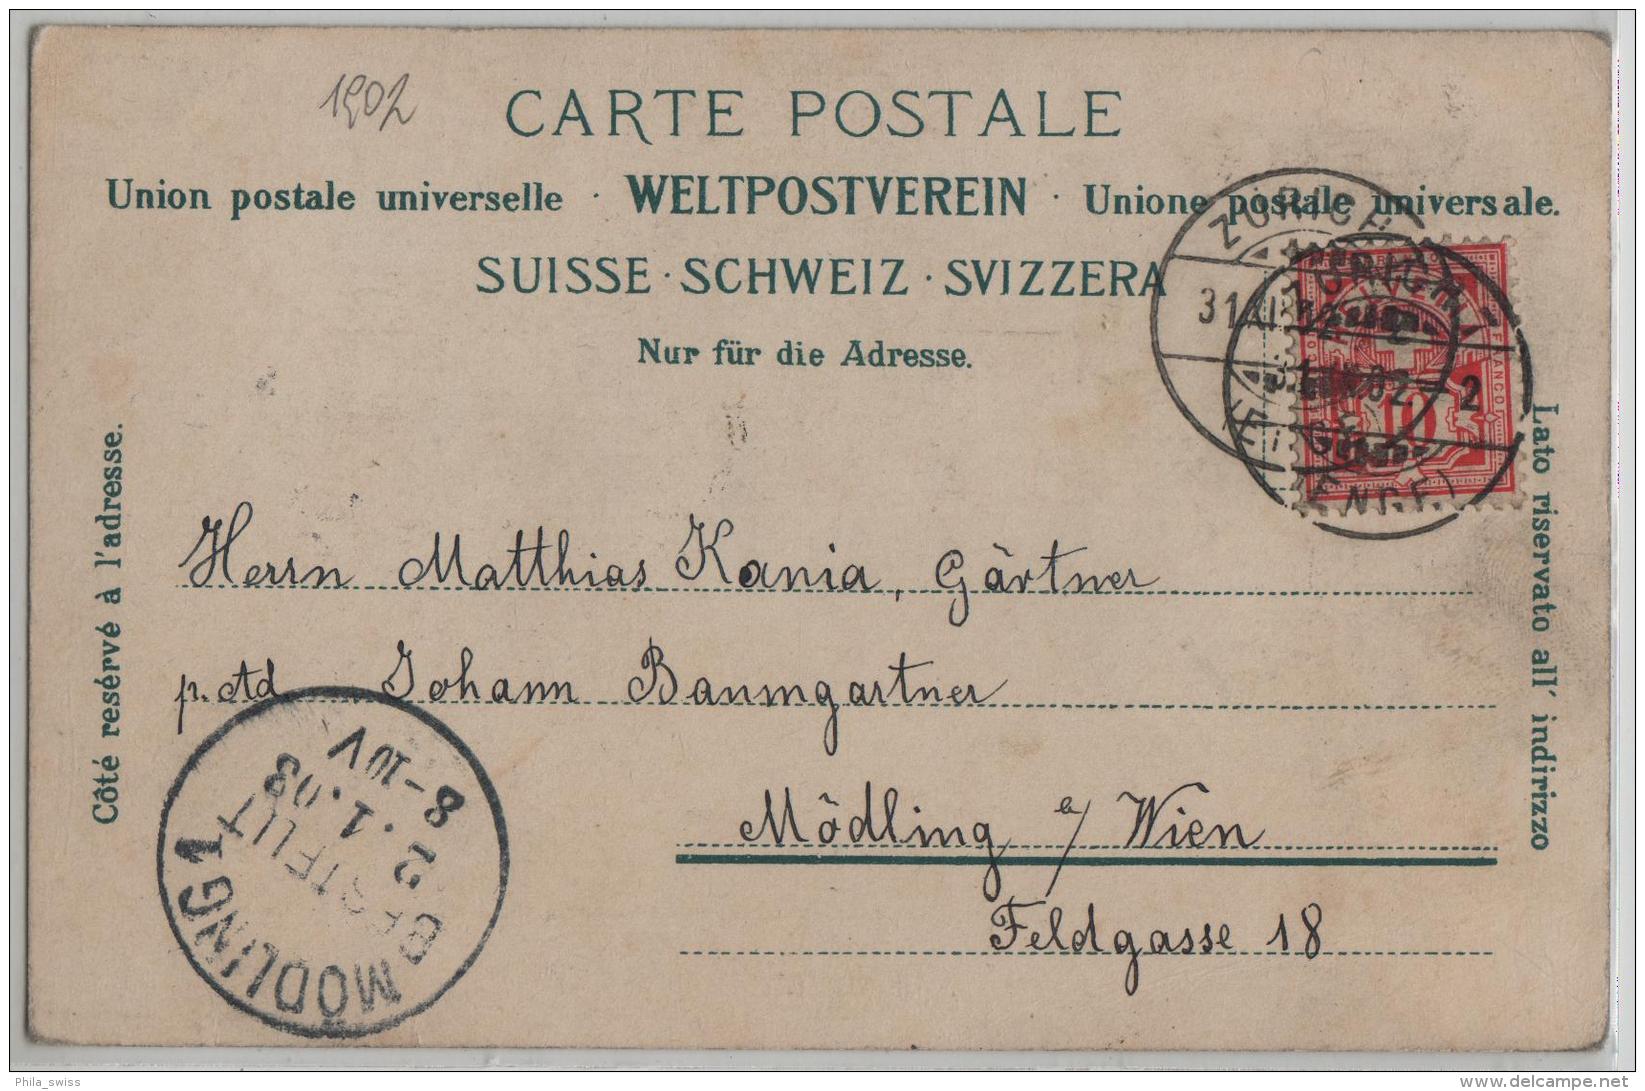 1902
CARTE POSTALE
Union postale universelle · WELTPOSTVEREIN · Unione postale universale.
SUISSE · SCHWEIZ · SVIZZERA
Nur für die Adresse.
Côté resérvé à l'adresse.
Lato riservato all' indirizzo
ZÜRICH
31.XII.02
ZÜRICH
31. 02. 2
(ENGE)
FRANCO
10
Herrn Matthias Kania, Gärtner
p. Ad Johann Baumgartner
Mödling a/ Wien
Feldgasse 18
MÖDLING 1
BESTELLT
2.1.03
8-10V
Phila_swiss
delcampe.net